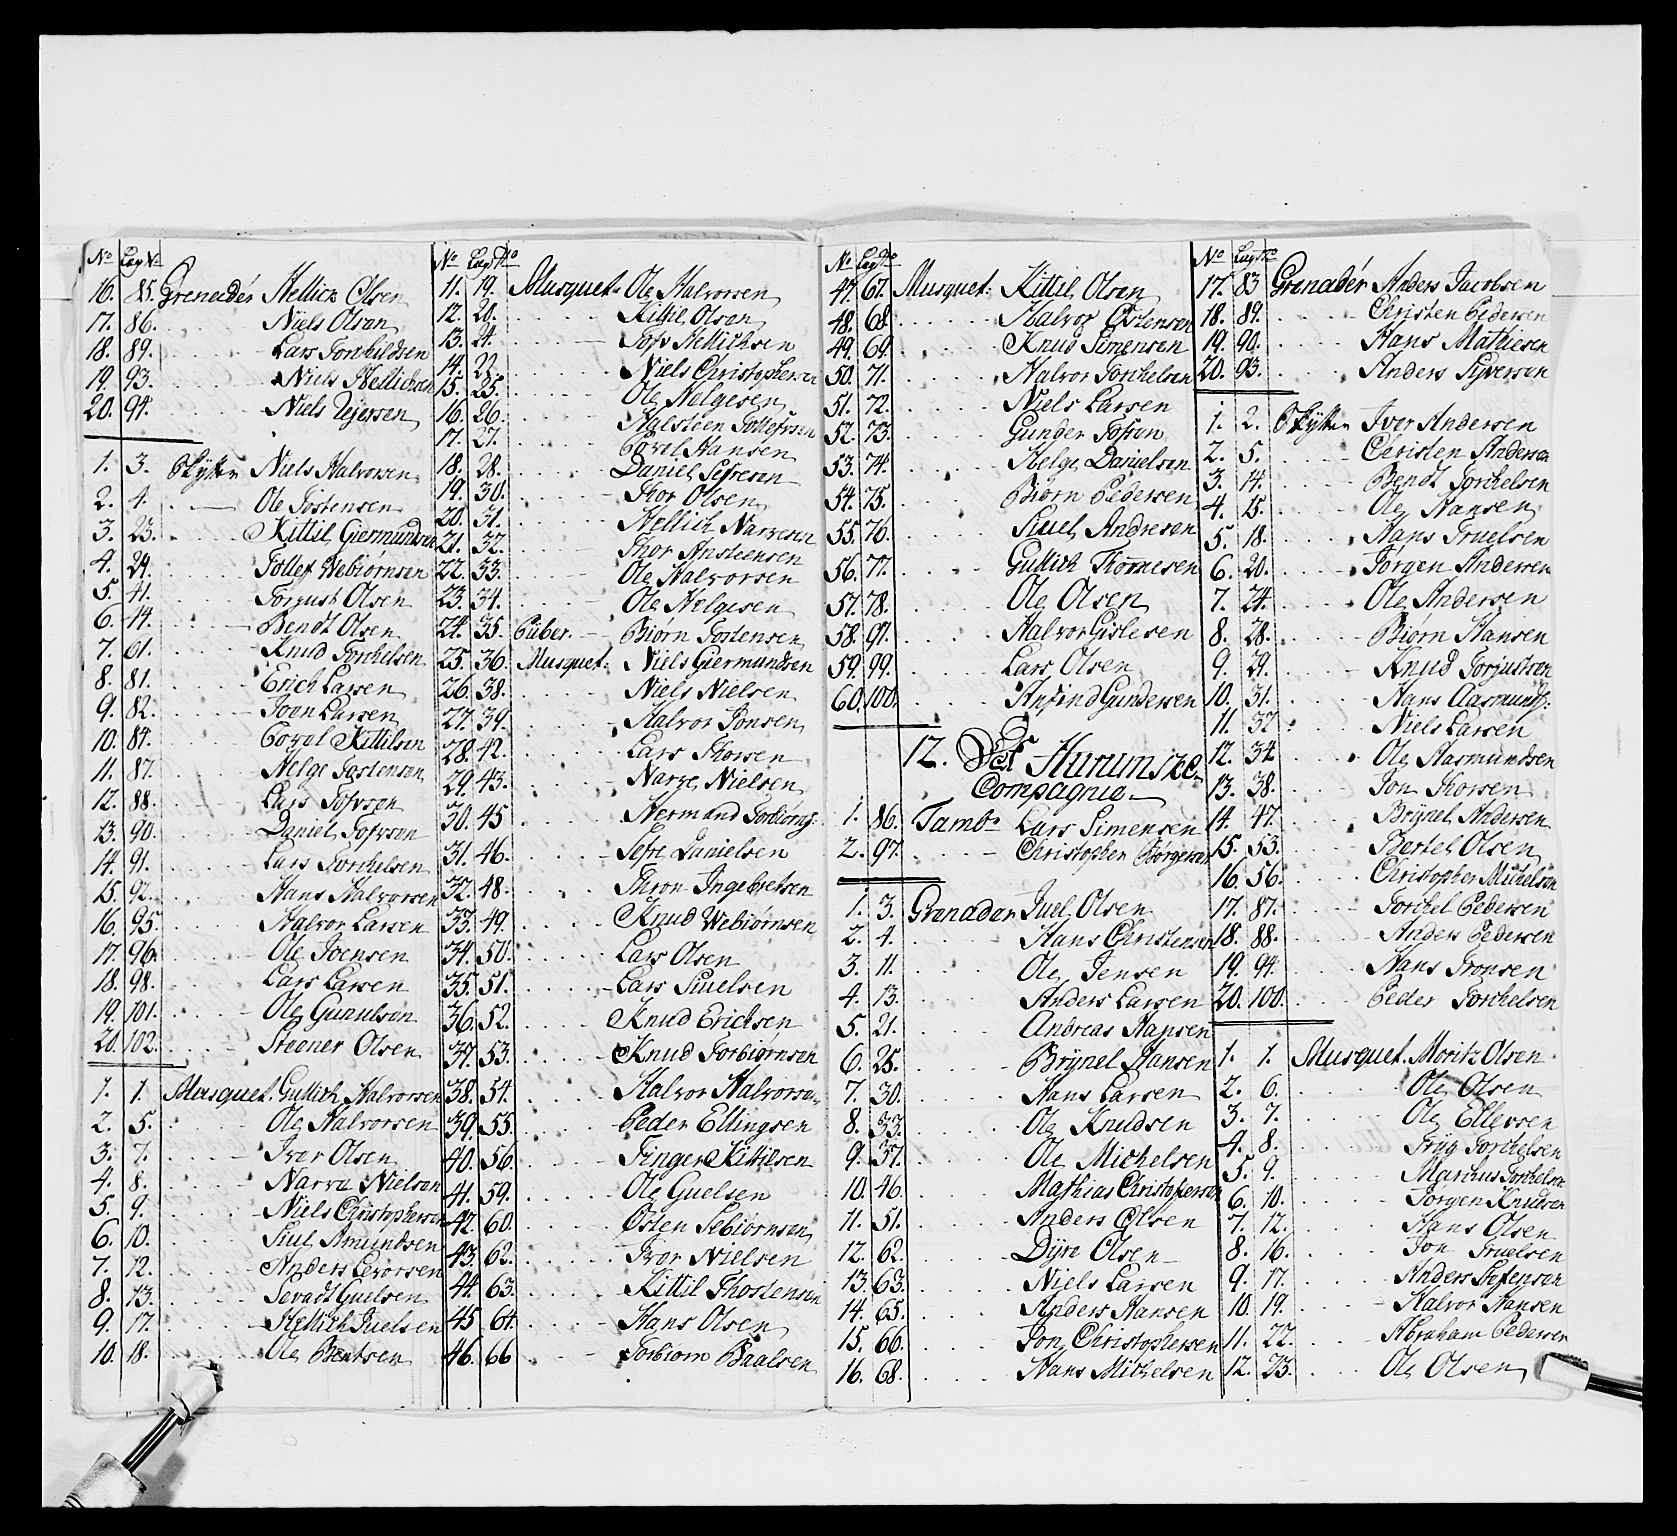 No Læg No
16. 85. Grenadér Hellick Olsen
17. 86. Niels Olsen
18. 89. Lars Torkildsen
19. 93. Niels Hellichsen
20. 94. Niels Zejersen
1. 3. Skytter Niels Halvorsen
2. 4. Ole Tostensen
3. 23. Kittil Giermundsen
4. 29. Tollef Webiørnsen
5. 41. Torjust Olsen
6. 44. Bendt Olsen
7. 61. Knud Torchelsen
8. 81. Erich Larsen
9. 82. Joen Larsen
10. 84. Corol Kittilsen
11. 87. Helge Tostensen
12. 88. Lars Tofvson
13. 90. Daniel Tofvson
14. 91. Lars Torchelsen
15. 92. Hans Halvorsen
16. 95. Halvor Larsen
17. 96. Ole Joensen
18. 98. Lars Larsen
19. 101. Ole Gunulsen
20. 102. Steener Olsen
1. 1. Musquet. Gullich Halvorsen
2. 5. Ole Halvorsen
3. 7. Iver Olsen
4. 8. Narve Nielsen
5. 9. Niels Christophersen
6. 10. Juul Amundsen
7. 12. Anders Levorsen
8. 13. Sevadt Guulsen
9. 17. Hellich Juelsen
10. 18. Ole Bentsen
No Læg No
11. 19. Musquet. Ole Halvorsen
12. 20. Kittil Olsen
13. 21. Tofs Hellichsen
14. 22. Niels Christophersen
15. 25. Ole Helgesen
16. 26. Halsteen Tollefssen
17. 27. Corol Hansen
18. 28. Daniel Sefresen
19. 30. Thor Olsen
20. 31. Hellich Narvesen
21. 32. Thor Ansteensen
22. 33. Ole Halvorsen
23. 34. Ole Helgesen
24. 35. Piiber. Biørn Tostensen
25. 36. Musquet: Niels Giermundsen
26. 38. Niels Nielsen
27. 39. Halvor Jonsen
28. 42. Lars Thorsen
29. 43. Narve Nielsen
30. 45 Hermand Torbiørns:
31. 46. Sefre Danielsen
32. 48. Thron Ingebretsen
33. 49. Knud Webiørnsen
34. 50. Lars Olsen
35. 51. Lars Siuelsen
36. 52. Knud Erichsen
37. 53. Knud Torbiørnsen
38. 54. Halvor Halvorsen
39. 55. Peder Ellingsen
40. 56. Finger Kittilsen
41. 59. Ole Guelsen
42. 60. Østen Sebiørnsen
43. 62. Iver Nielsen
44. 63. Kittil Thostensen
45 64. Hans Olsen
46. 66 Torbiorn Baalsen
No Læg No
47. 67. Musquet: Kittil Olsen
48. 68. Halvor Østensen
49. 69. Knud Simensen
50. 71. Halvor Torchelsen
51. 72. Niels Larsen
52. 73. Gunder Tofson
53. 74. Helge Danielsen
54. 75. Biørn Pedersen
55. 76. Siuel Andresen
56. 77. Gullich Thomesen
57. 78. Ole Olsen
58. 97. Halvor Gislesen
59. 99. Lars Olsen
60. 100. Anfind Gundersen
12. Det Hurumske
Compagnie
1. 86. Tambr Lars Simensen
2. 97. Christopher Børgersen
1. 3. Grenader Juel Olsen
2. 4. Hans Christensen
3. 11. Ole Jensen
4. 13. Anders Larsen
5. 21. Andreas Hansen
6. 25. Brÿnel Hansen
7. 30. Hans Larsen
8. 33. Ole Knudsen
9. 37. Ole Michelsen
10. 46. Mathias Christophersen
11. 51. Anders Olsen
12. 62. Dÿre Olsen
13. 63. Niels Larsen
14. 65. Anders Hansen
15. 66. Jon Christophersen
16. 68. Hans Michelsen
No Læg No
17. 83 Grenadér Anders Jacobsen
18. 89. Christen Pedersen
19. 90. Hans Mathiesen
20. 93. Anders Syversen
1. 2. Skytter Iver Andersen
2. 5. Christen Andersen
3. 14. Bendt Torchelsen
4. 15. Ole Hansen
5. 18. Hans Truelsen
6. 20. Jørgen Andersen
7. 24. Ole Andersen
8. 28. Biørn Hansen
9. 29. Knud Torjustsen
10. 31. Hans Aasmunds:
11. 37. Niels Larsen
12. 34 Ole Aasmundsen
13. 38. Jon Thorsen
14. 47. Brÿnel Andersen
15. 53. Bertel Olsen
16. 56. Christopher Michelsen
17. 87. Torchel Pedersen
18. 88. Anders Pedersen
19. 94. Hans Tronsen
20. 100. Peder Torchelsen
1. 1. Musquet. Moritz Olsen
2. 6. Ole Olsen
3. 7. Ole Ellevsen
4. 8. Trüg Torchelsen
5. 9. Marcus Torchelsen
6. 10. Jørgen Knudsen
7. 12. Hans Olsen
8. 16. Jon Truelsen
9. 17. Anders Stefensen
10. 19. Halvor Hansen
11. 22. Abraham Pedersen
12. 23. Ole Olsen